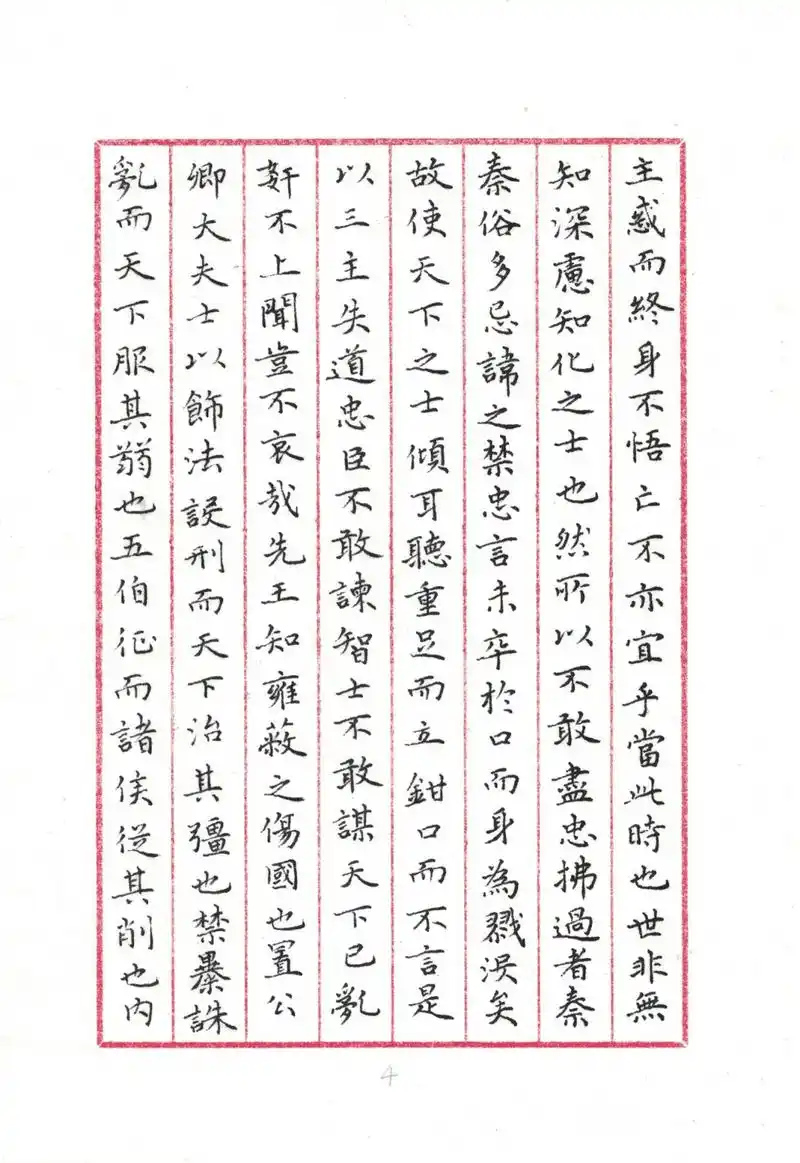 主惑而終身不悟亡不亦宜乎當此時也世非無
知深慮知化之士也然所以不敢盡忠拂過者秦
秦俗多忌諱之禁忠言未卒於口而身為戮沒矣
故使天下之士傾耳聽重足而立鉗口而不言是
以三主失道忠臣不敢諫智士不敢謀天下已亂
奸不上聞豈不哀哉先王知雍蔽之傷國也置公
卿大夫士以飾法設刑而天下治其彊也禁暴誅
亂而天下服其弱也五伯征而諸侯從其削也內
4